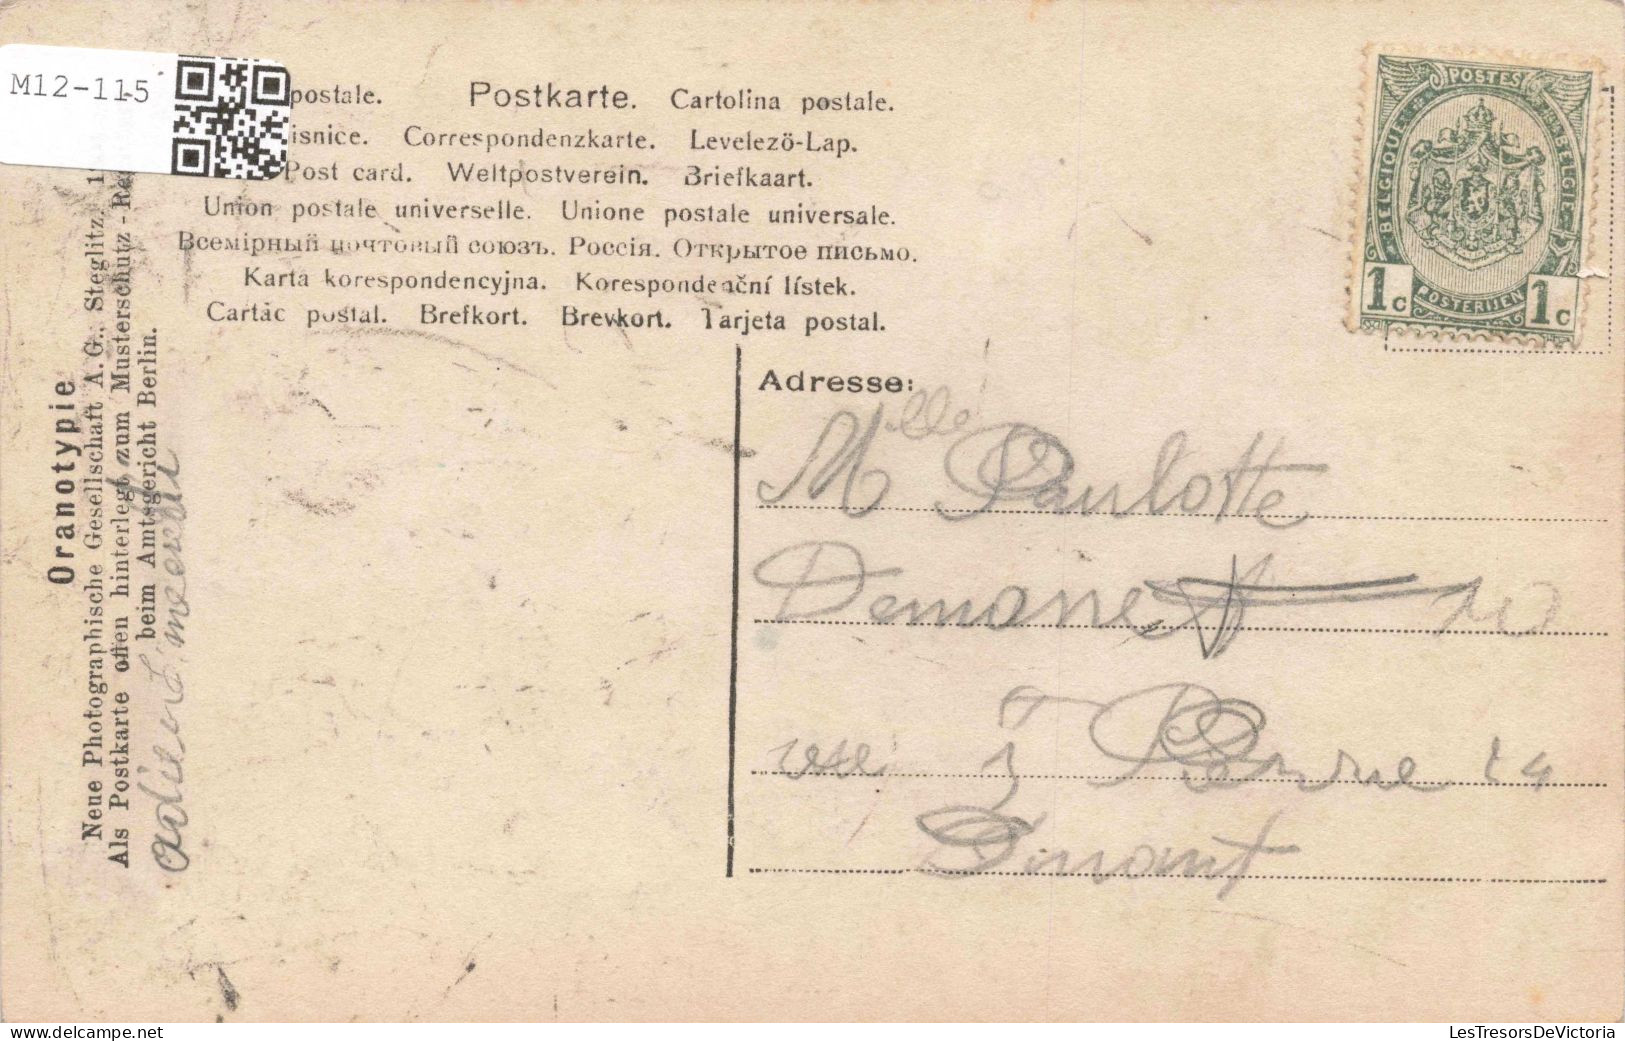 M12-115
postale. Postkarte. Cartolina postale.
isnice. Correspondenzkarte. Levelezö-Lap.
Post card. Weltpostverein. Briefkaart.
Union postale universelle. Unione postale universale.
Всемірный почтовый союзъ. Россія. Открытое письмо.
Karta korespondencyjna. Korespondenční lístek.
Cartác postal. Brefkort. Brevkort. Tarjeta postal.
Oranotypie
Neue Photographische Gesellschaft A.G., Steglitz. 1
Als Postkarte offen hinterlegt zum Musterschutz-Re
beim Amtsgericht Berlin.
POSTES
BELGIQUE
BELGIE
POSTERIJEN
1c 1c
Adresse:
Mlle Paulotte
rue St Pierre 14
Dinant
LesTresorsDeVictoria